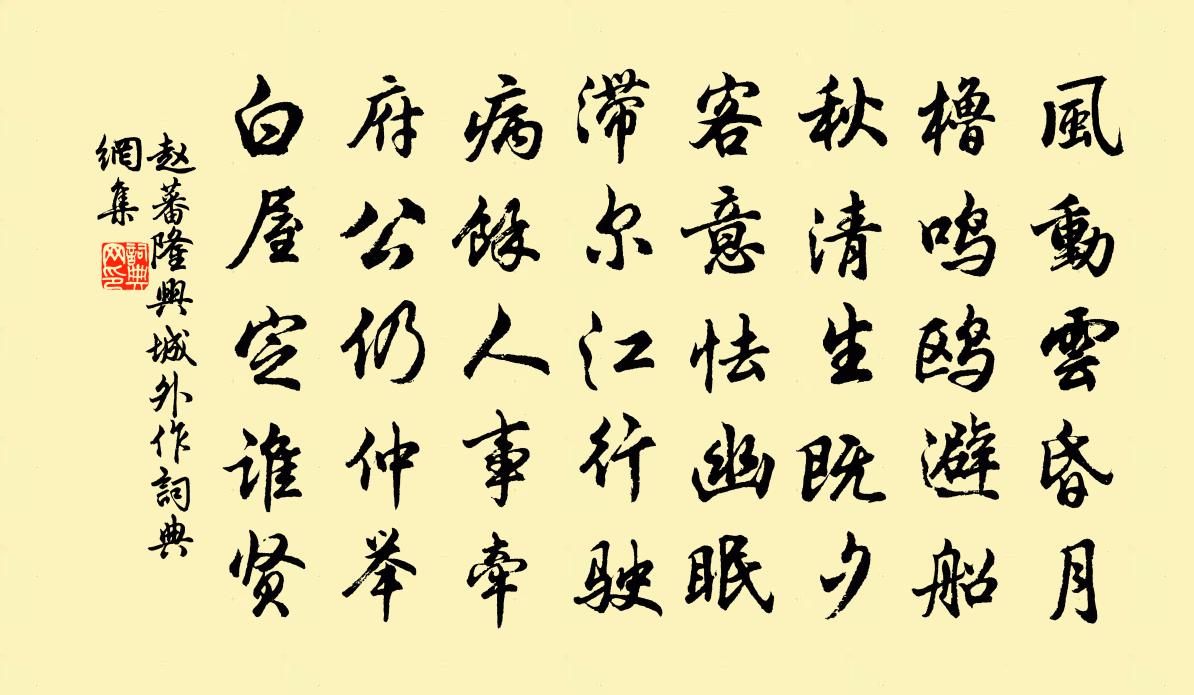 風動雲昏月
櫓鸣鸥避船
秋清生既夕
客意怯幽眠
滞尔江行駛
病餘人事牵
府公仍仲举
白屋定谁贤
赵蕃隆興城外作詞典
網集
詞典
网印